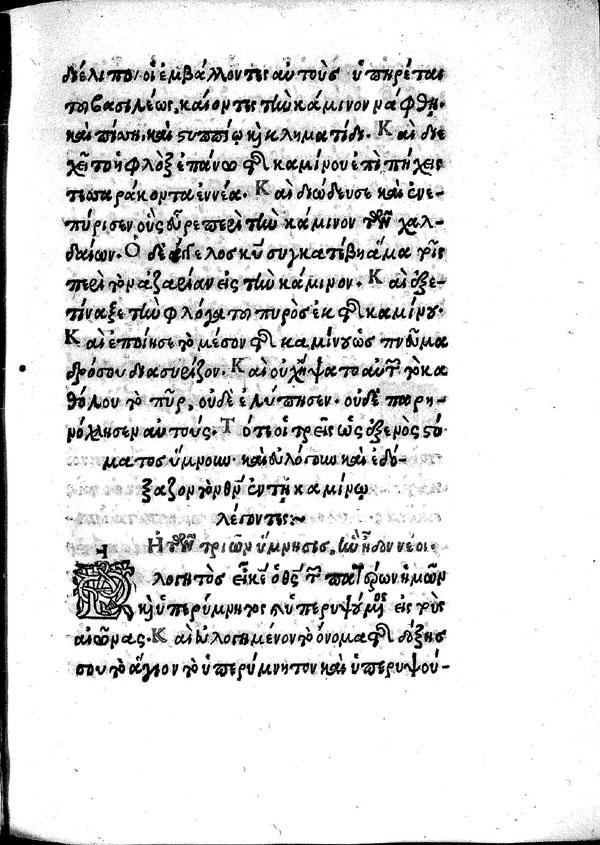 διέλιπον οἱ ἐμβάλλοντες αὐτοὺς ὑπηρέται
τοῦ βασιλέως, καίοντες τὴν κάμινον νάφθῃ.
καὶ πίσσῃ, καὶ στυππίῳ κỳ κληματίδι. Καὶ διε
χεῖτο ἡ φλὸξ ἐπάνω τῆς καμίνου ἐπὶ πήχεις
τεσσαράκοντα ἐννέα. Καὶ διώδευσε καὶ ἐνε-
πύρισεν οὓς εὗρε περὶ τὴν κάμινον τῶν χαλ-
δαίων. Ὁ δὲ ἄγγελος κυ συγκατέβη ἅμα τοῖς
περὶ τὸν ἀζαρίαν εἰς τὴν κάμινον. Καὶ ἐξε-
τίναξε τὴν φλόγα τοῦ πυρὸς ἐκ τῆς καμίνου.
Καὶ ἐποίησε τὸ μέσον τῆς καμίνου ὡς πνεῦμα
δρόσου διασυρίζον. Καὶ οὐχ ἥψατο αὐτῶν τὸ κα
θόλου τὸ πῦρ, οὐδὲ ἐλύπησεν. οὐδὲ παρη-
νόχλησεν αὐτούς. Τότε οἱ τρεῖς ὡς ἐξ ἑνὸς στό-
ματος ὕμνουν. καὶ εὐλόγουν καὶ ἐδό-
ξαζον τὸν θν ἐν τῇ καμίνῳ
λέγοντες:~
Ἡ τῶν τριῶν ὕμνησις, ὧν ᾖδον νέοι.
Εὐλογητὸς εἶ κε ὁ θς τῶν πατέρων ἡμῶν
κỳ ὑπερύμνητος κỳ ὑπερυψούμενος εἰς τοὺς
αἰῶνας. Καὶ εὐλογημένον τὸ ὄνομα τῆς δόξης
σου τὸ ἅγιον τὸ ὑπερύμνητον καὶ ὑπερυψού-